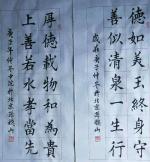 德如美玉終身守
善似清泉一生行
厚德載物和為貴
上善若水孝當先